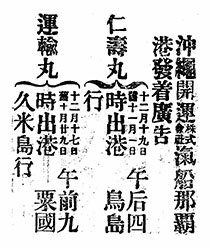 沖繩開運株式會社滊船那覇
港發着廣告
仁壽丸
十二月十九日
舊十一月一日
午后四
時出港 鳥島
行
運輸丸
十二月十七日
舊十月廿九日
午前九
時出港 粟國
久米島行